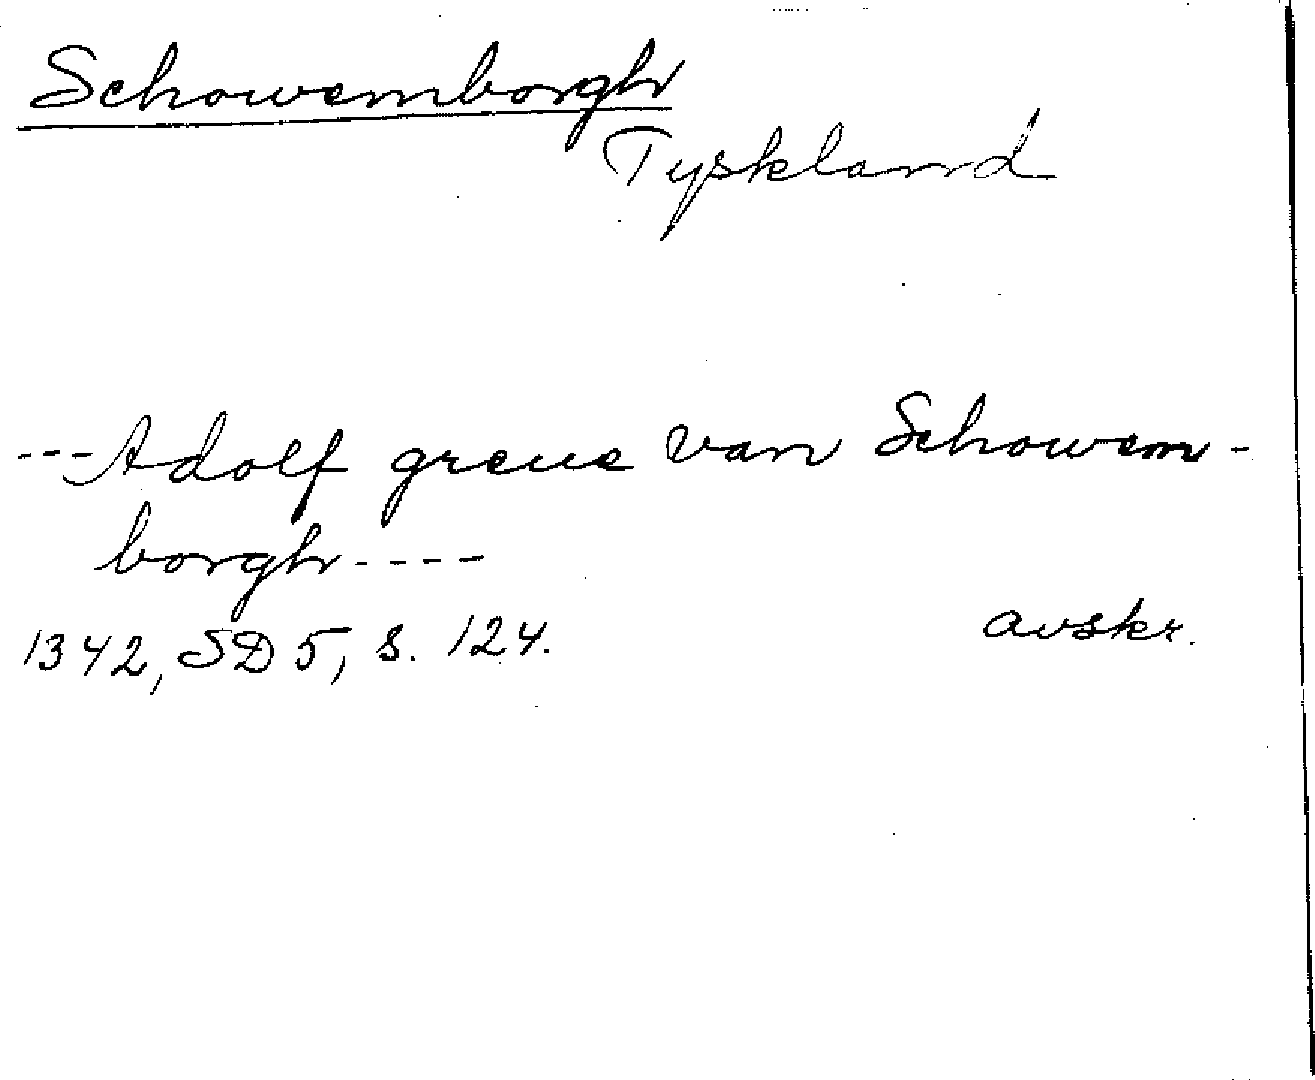 Schowemborgh
Tyskland
---Adolf greue van Schowem-
borgh----
1342, SD 5, s. 124.
avskr.